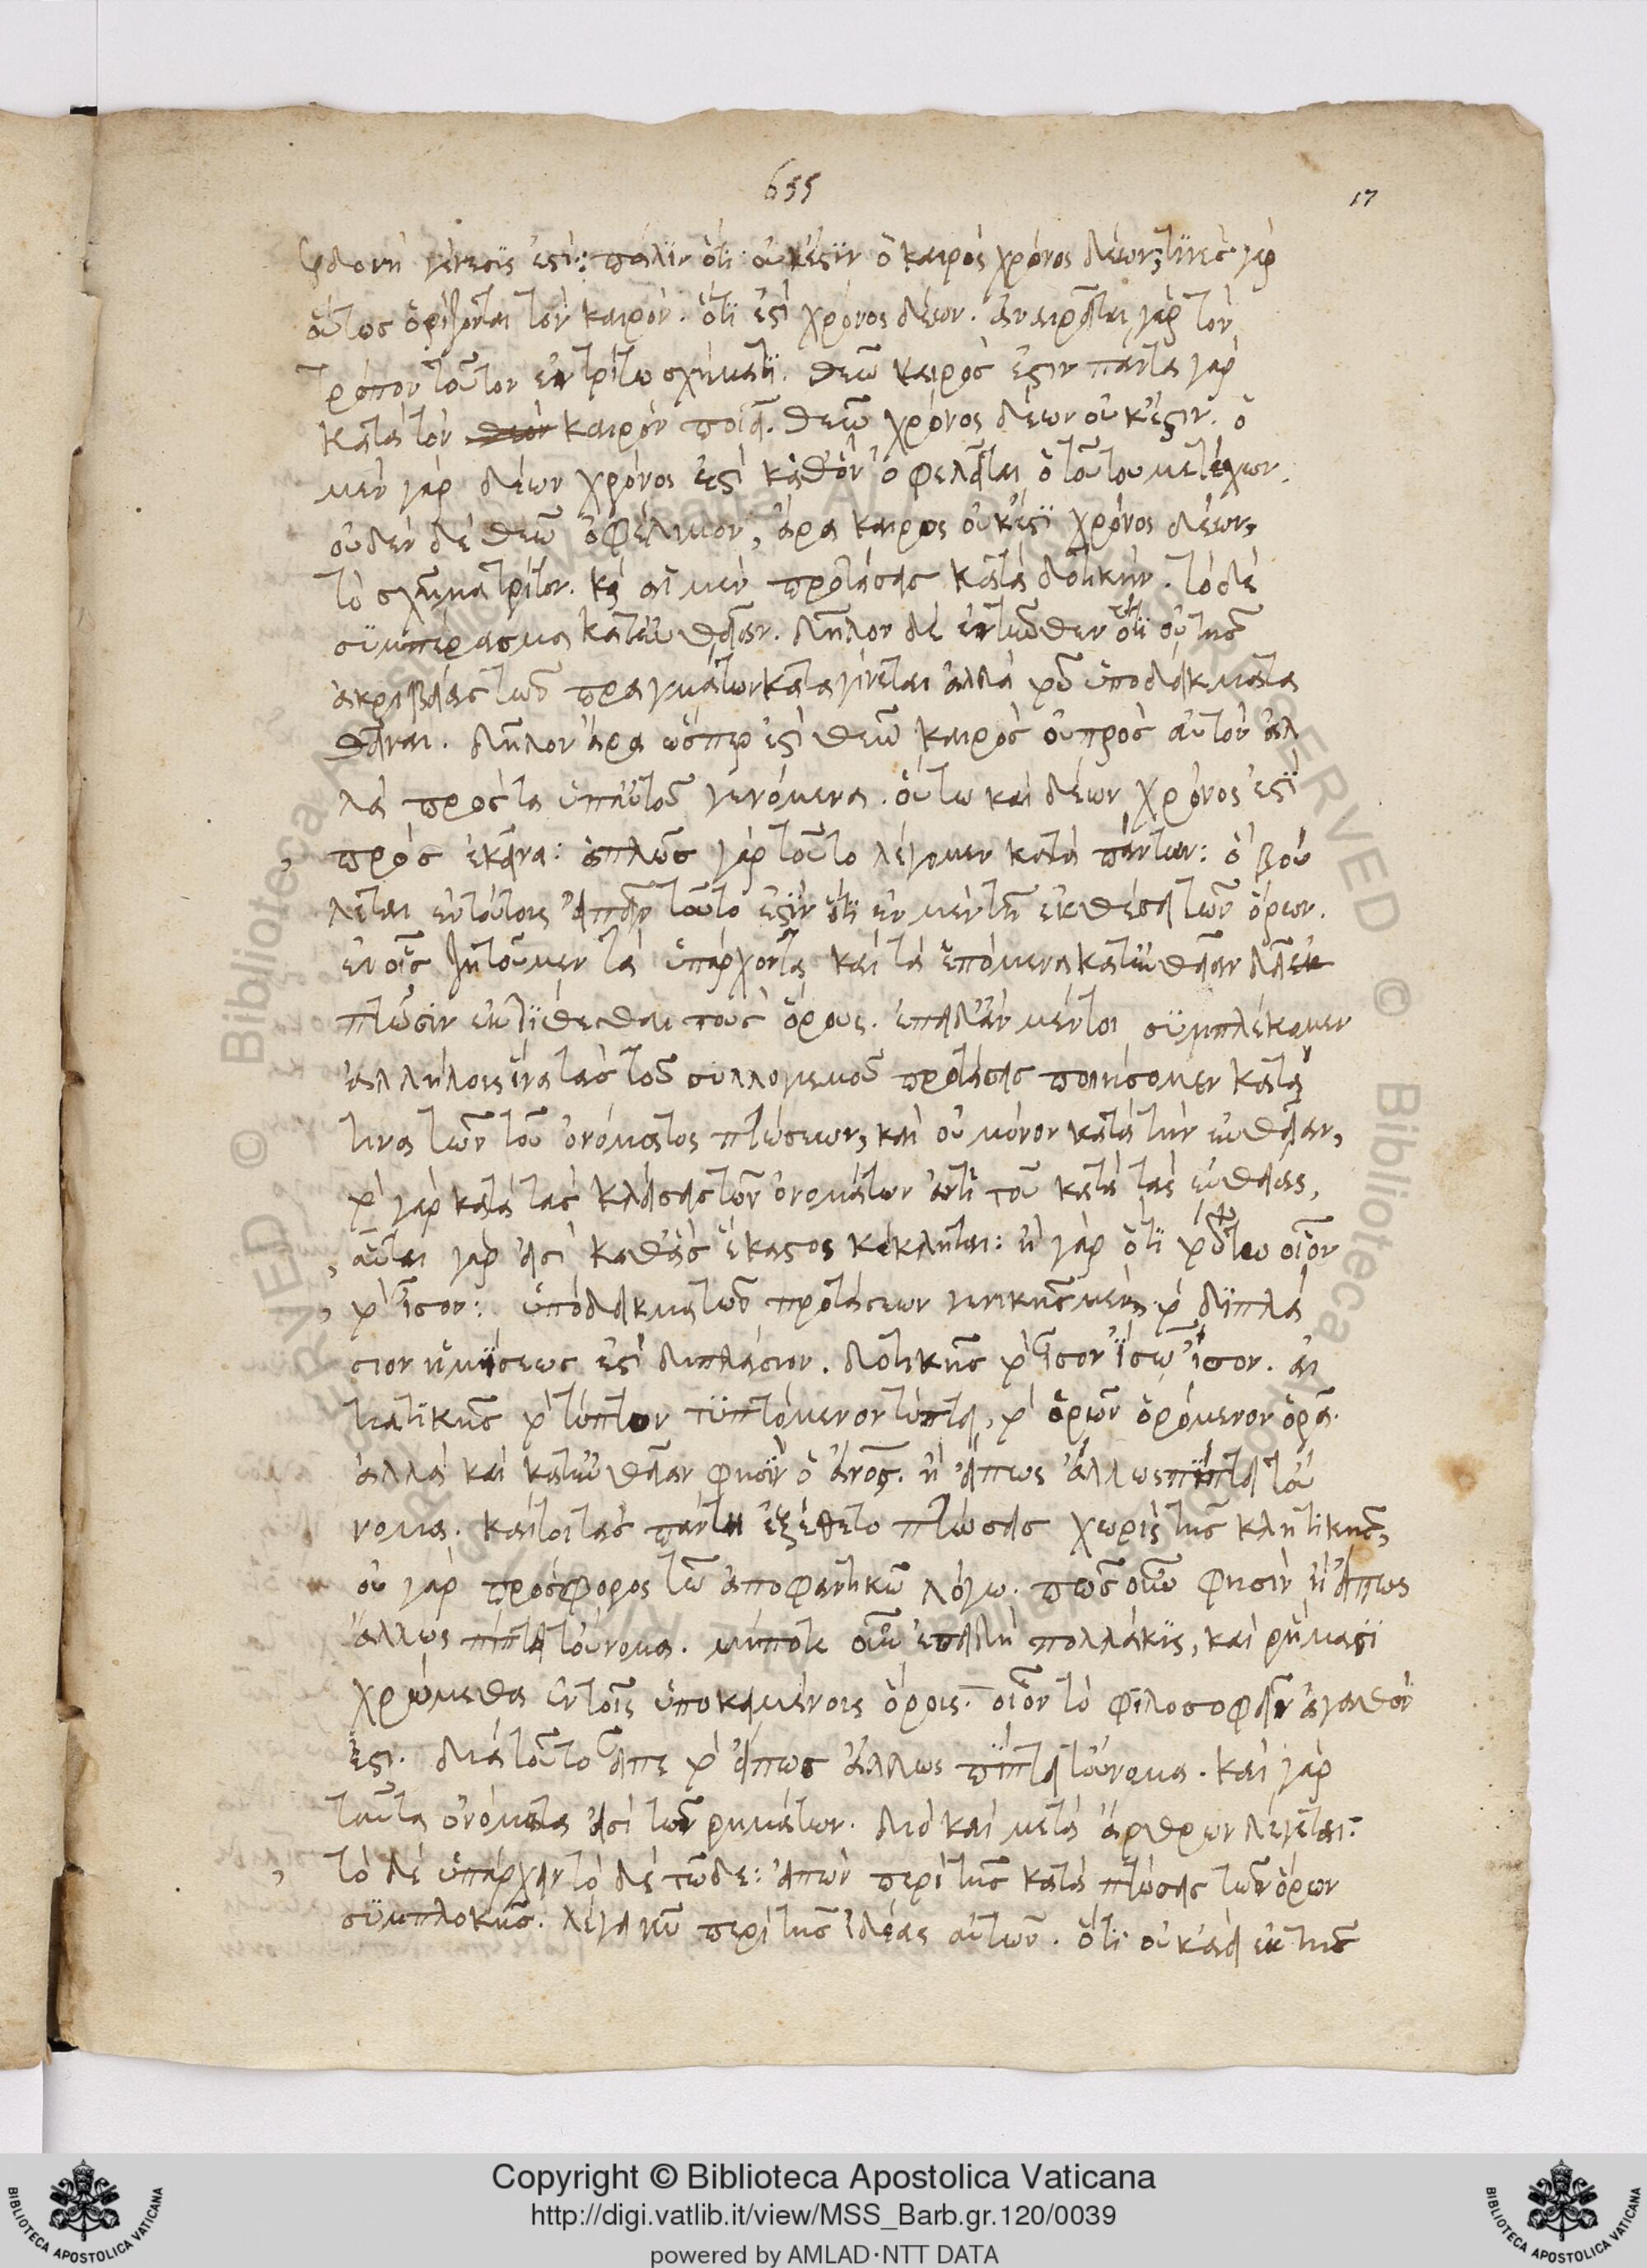 655
17
ἡδονὴ γένεσις ἐστί: πάλιν ὅτι οὐκέστιν ὁ καιρὸς χρόνος δέων, τινὲς γὰρ
οὕτως ὁρίζονται τὸν καιρόν. ὅτι ἐστὶ χρόνος δέων. ἀναιρεῖται γὰρ τὸν
τρόπον τοῦτον ἐν τρίτω σχήματι. θεῶ καιρὸς ἔστιν παντα γὰρ
κατὰ τὸν θεὸν καιρὸν ποιεῖ. θεῶ χρόνος δέων οὐκ ἔστιν. ὁ
μὲν γὰρ δέων χρόνος ἐστὶ καθὸν ὀφελεῖται ὁ τούτου μετέχων.
οὐδὲν δὲ θεῶ ὀφέλιμον, ἄρα καιρος οὐκ ἔστι χρόνος δέων,
τὸ σχῆμα τρίτον. καὶ αἱ μὲν προτάσεις κατὰ δοτικὴν. τὸ δὲ
συμπέρασμα κατευθεῖαν. δῆλον δὲ ἐντεῦθεν ὅτι οὐ τῆς
ἀκριβείας τῶν πραγμάτων καταγίνεται ἀλλὰ χρ ὑποδείγματα
θεῖναι. δῆλον ἄρα ὥσπερ ἐστὶ θεῶ καιρὸς οὐπρὸς αὐτὸν ἀλ
λὰ προς τὰ ὑπαὐτοῦ γενόμενα. οὕτω καὶ δέων χρόνος ἐστὶ
πρὸς ἐκεῖνα: ἁπλῶς γὰρ τοῦτο λέγομεν κατὰ πάντων: ὃ βού
λεται ἐν τούτοις εἰπεῖν τοῦτο ἐστὶν ὅτι ἐν μὲν τῆ ἐκθέσει τῶν ὅρων.
ἐν οἷς ζητοῦμεν τὰ ὑπάρχοντα καὶ τὰ ἑπόμενα κατευθεῖαν δεῖ
πτῶσιν ἐκτίθεσθαι τοὺς ὅρους. ἐπειδὰν μέντοι συμπλέκομεν
ἀλλήλοις ἵνα τὰς τοῦ συλλογισμοῦ προτάσεις ποιήσομεν κατὰ
τινα τῶν τοῦ ὀνόματος πτώσεων, καὶ οὐ μόνον κατὰ τὴν εὐθεῖαν,
χρ γὰρ κατὰ τὰς κλήσεις τῶν ὀνομάτων ἀντὶ τοῦ κατὰ τὰς εὐθείας,
αὗται γὰρ εἰσὶ καθὰς ἕκαστος κέκληται: ἢ γὰρ ὅτι τούτω οἷον
χρ ἴσον: ὑπόδειγμα τῶν προτάσεων γενικῆς μὲν, χρ διπλά
σιον ἡμίσεως ἐστὶ διπλάσιον. δοτικῆς χρ ἴσον ἴσω ἴσον. αἰ
τιατικῆς χρ τύπτον τυπτόμενον τύπτει, χρ ὁρῶν ὁρόμενον ὁρᾶ.
ἀλλὰ καὶ κατευθεῖαν φησὶν ὁ ἄνος. ἢ εἴπως ἄλλως πίπτει τοὔ
νομα. καίτοι τὰς πάντη ἐξέθετο πτώσεις χωρὶς τῆς κλητικῆς,
οὐ γὰρ πρόσφορος τῶ ἀποφαντικῶ λόγω. πῶς οὖν φησιν ἢ εἴπως
ἄλλως πίπτει τοὔνομα. μήποτε οὖν ἐπειδὴ πολλάκις, καὶ ρήμασι
χρώμεθα ἐν τοῖς ὑποκειμένοις ὅροις. οἷον τὸ φιλοσοφεῖν ἀγαθόν
ἐστι. διὰ τοῦτο εἶπε χρ εἴπως ἄλλως πίπτει τοὔνομα. καὶ γὰρ
ταῦτα ὀνόματα εἰσὶ τῶν ρημάτων. διὸ καὶ μετὰ ἄρθρων λέγεται:
τὸ δὲ ὑπάρχειν τὸ δὲ τῶδε: εἰπὼν περὶ τῆς κατὰ πτώσεις τῶν ὅρων
συμπλοκῆς. λέγει νῦν περὶ τῆς ἰδέας αὐτῶν. ὅτι οὐκ ἀεὶ ἐκ τῆς
Copyright © Biblioteca Apostolica Vaticana
http://digi.vatlib.it/view/MSS_Barb.gr.120/0039
powered by AMLAD·NTT DATA